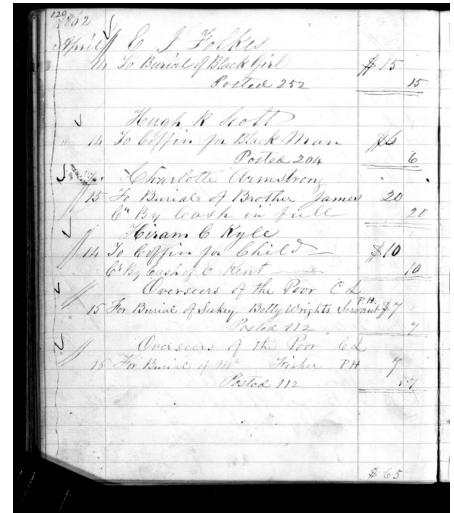 120
1862
April E J Folkes
14 To Burial of Black Girl $15
Posted 252 15
Hugh R Scott
14 To Coffin for Black Man $6
Posted 204 6
Charlotte Armstrong
15 To Burial of Brother James 20
Cr By Cash in full 20
Hiram C Kyle
14 To Coffin for Child $10
Cr By Cash of C Kent 10
Overseers of the Poor C L
15 For Burial of Suckey Betty Wrights Servant P.H. $7
Posted 112 7
Overseers of the Poor C L
15 For Burial of Mr Fisher PH 7
Posted 112 7
$65